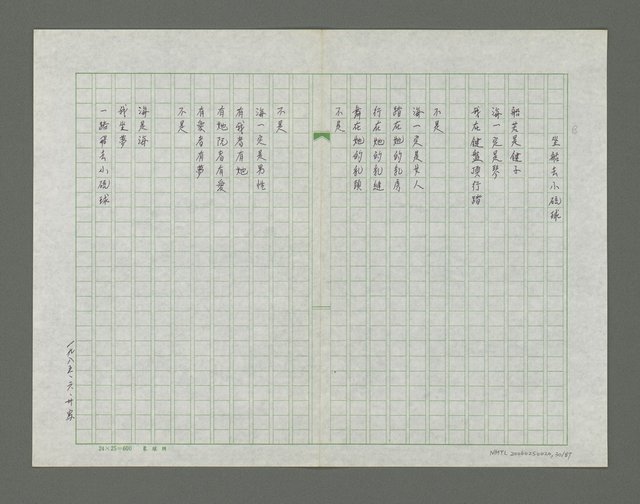 坐船去小硫球
船若是健子
海一定是琴
我在健盤頂行踏
不是
海一定是女人
踏在她的乳房
行在她的乳縫
舞在她的乳頭
不是
不是
海一定是男性
有我者有她
有她既者有愛
有愛者有夢
不是
海是海
我坐夢
一路飛去小硫球
24×25=600
NMTL 20060250020, 30/87